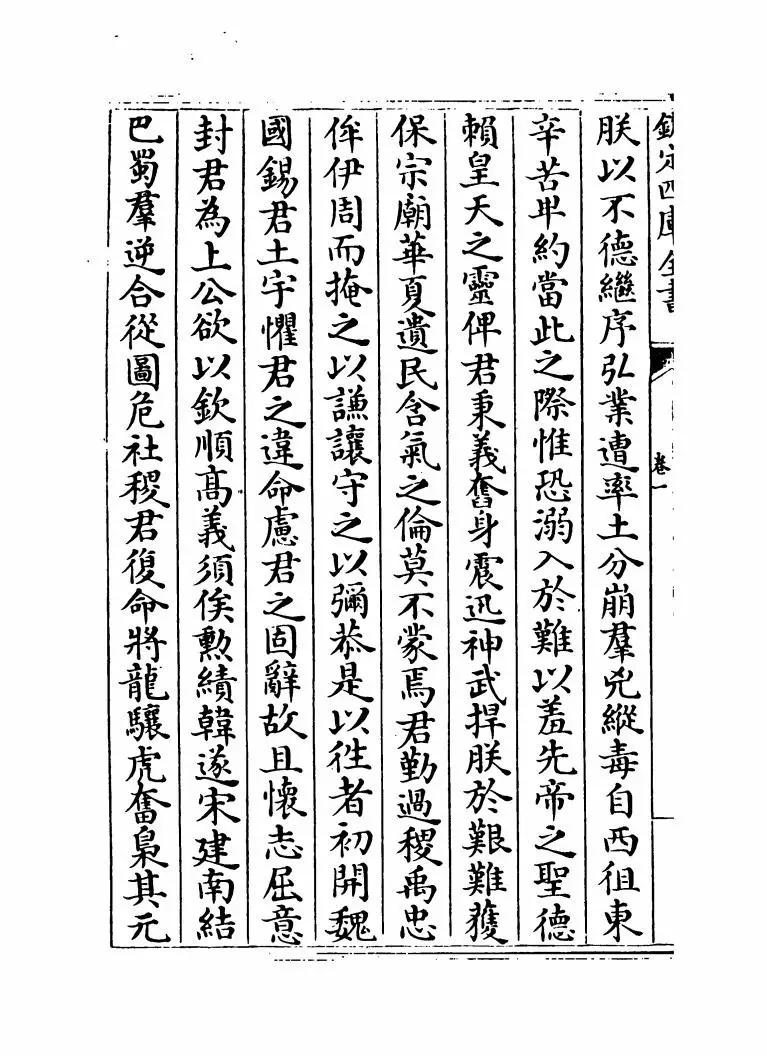 欽定四庫全書
卷一
朕以不德繼序弘業遭率土分崩羣兇縱毒自西徂東
辛苦卑約當此之際惟恐溺入於難以羞先帝之聖德
賴皇天之靈俾君秉義奮身震迅神武捍朕於艱難獲
保宗廟華夏遺民含氣之倫莫不蒙焉君勤過稷禹忠
侔伊周而掩之以謙讓守之以彌恭是以徃者初開魏
國錫君土宇懼君之違命慮君之固辭故且懷志屈意
封君為上公欲以欽順髙義須俟勲績韓遂宋建南結
巴蜀羣逆合從圖危社稷君復命將龍驤虎奮梟其元